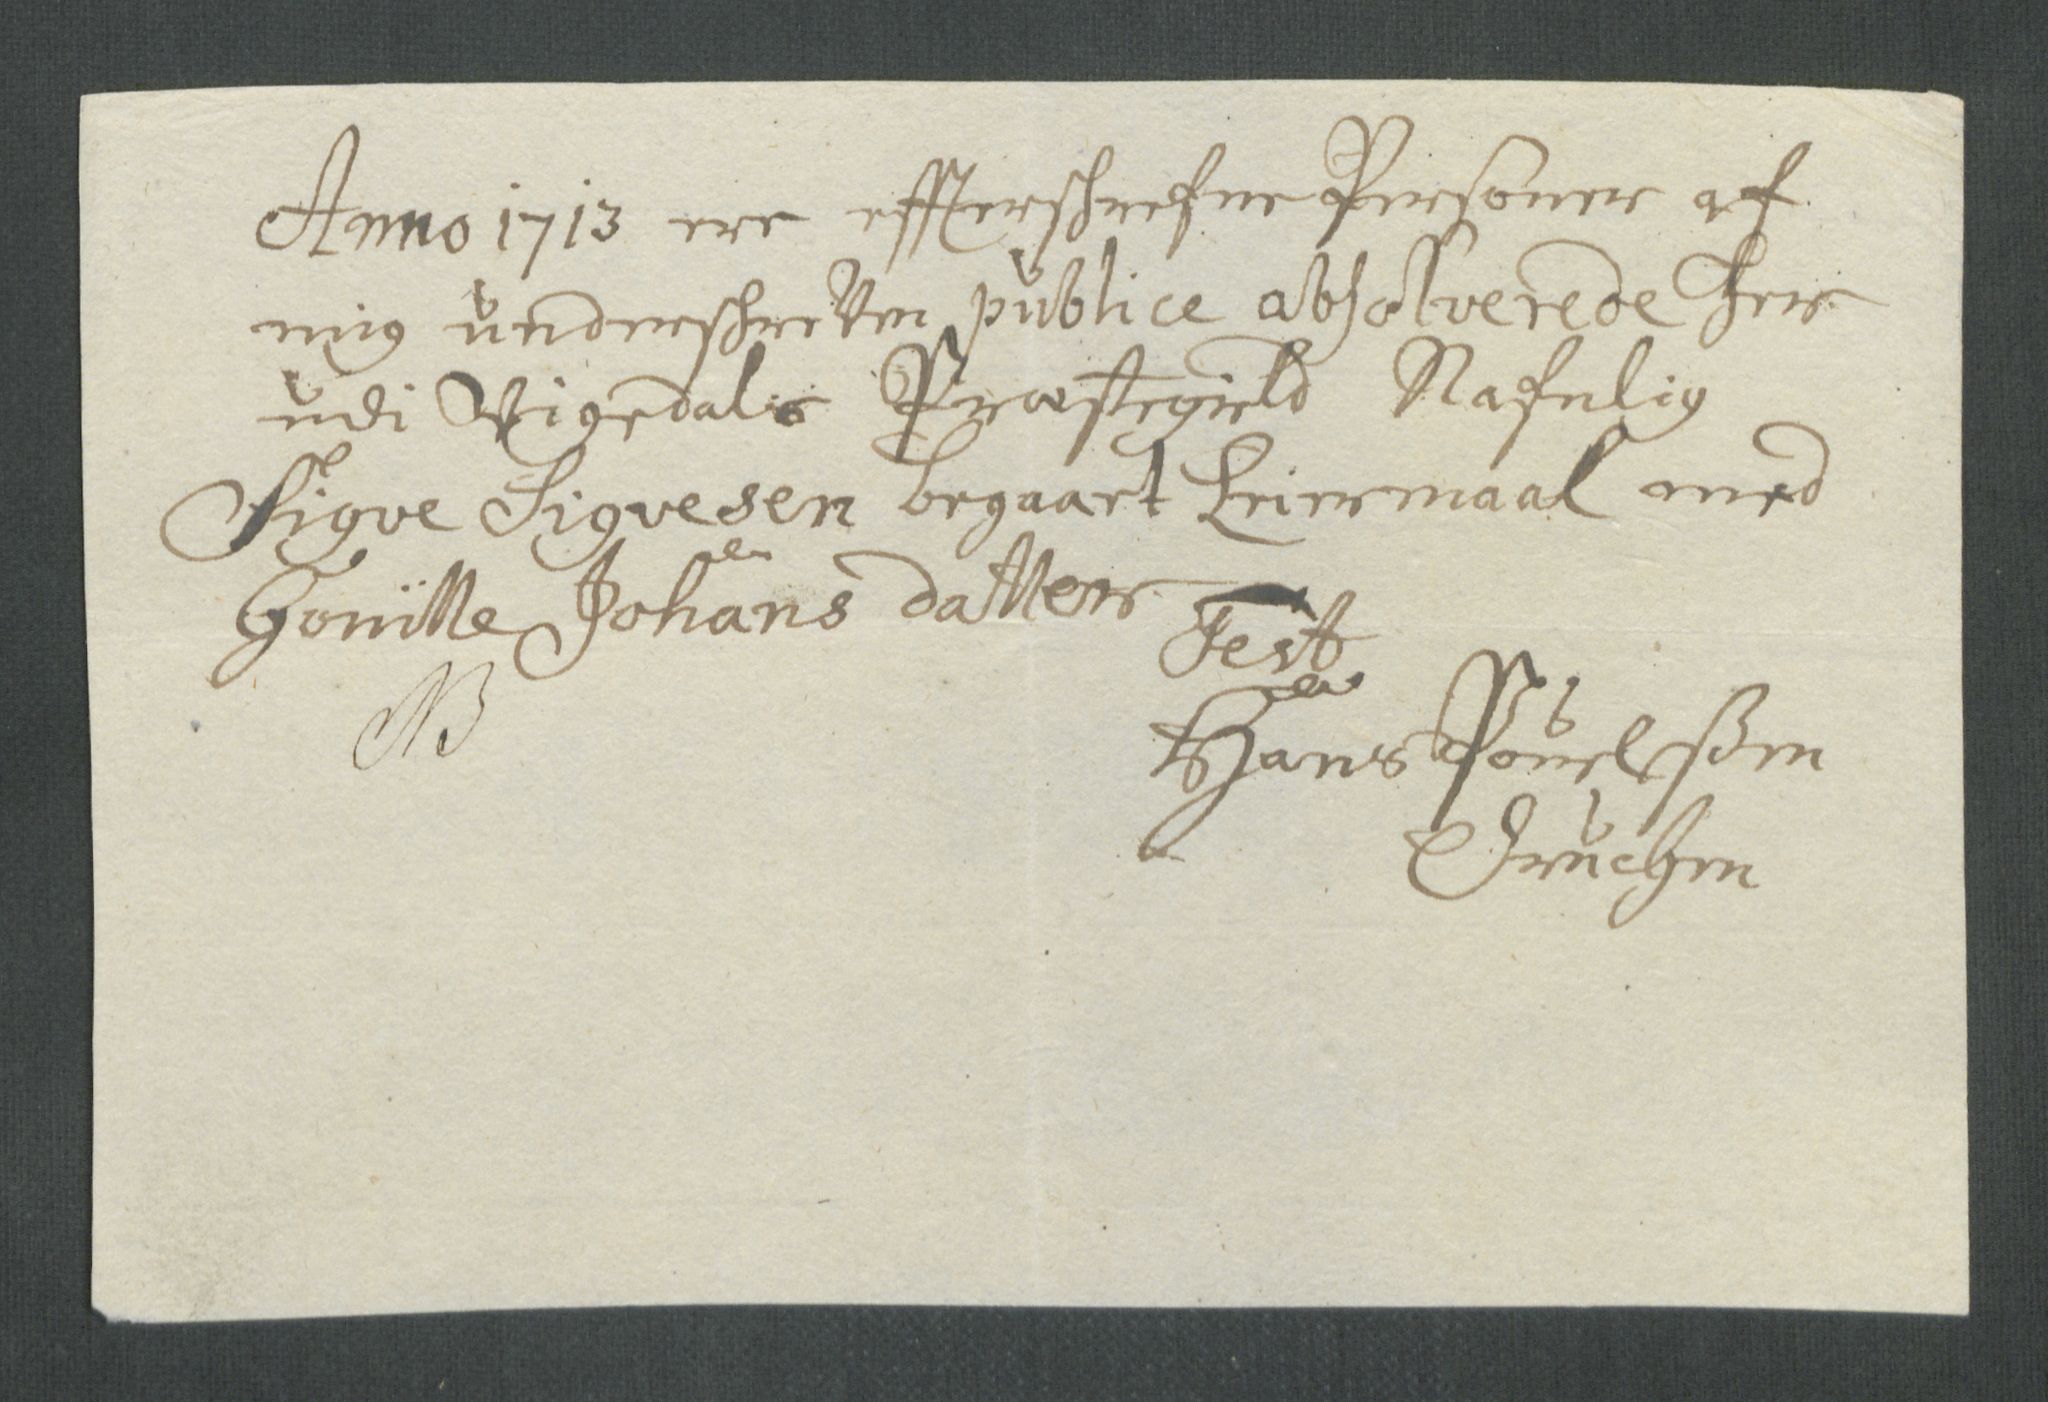 Anno 1713 ere effterschrefne Personer af
mig underschrefven publice absolverede her
udi Vigedals Præstegield Nafnlig
Sigve Sigvesen begaaet Leiermaal med
Johans datter
NB
Test
Hans Pouelsßen